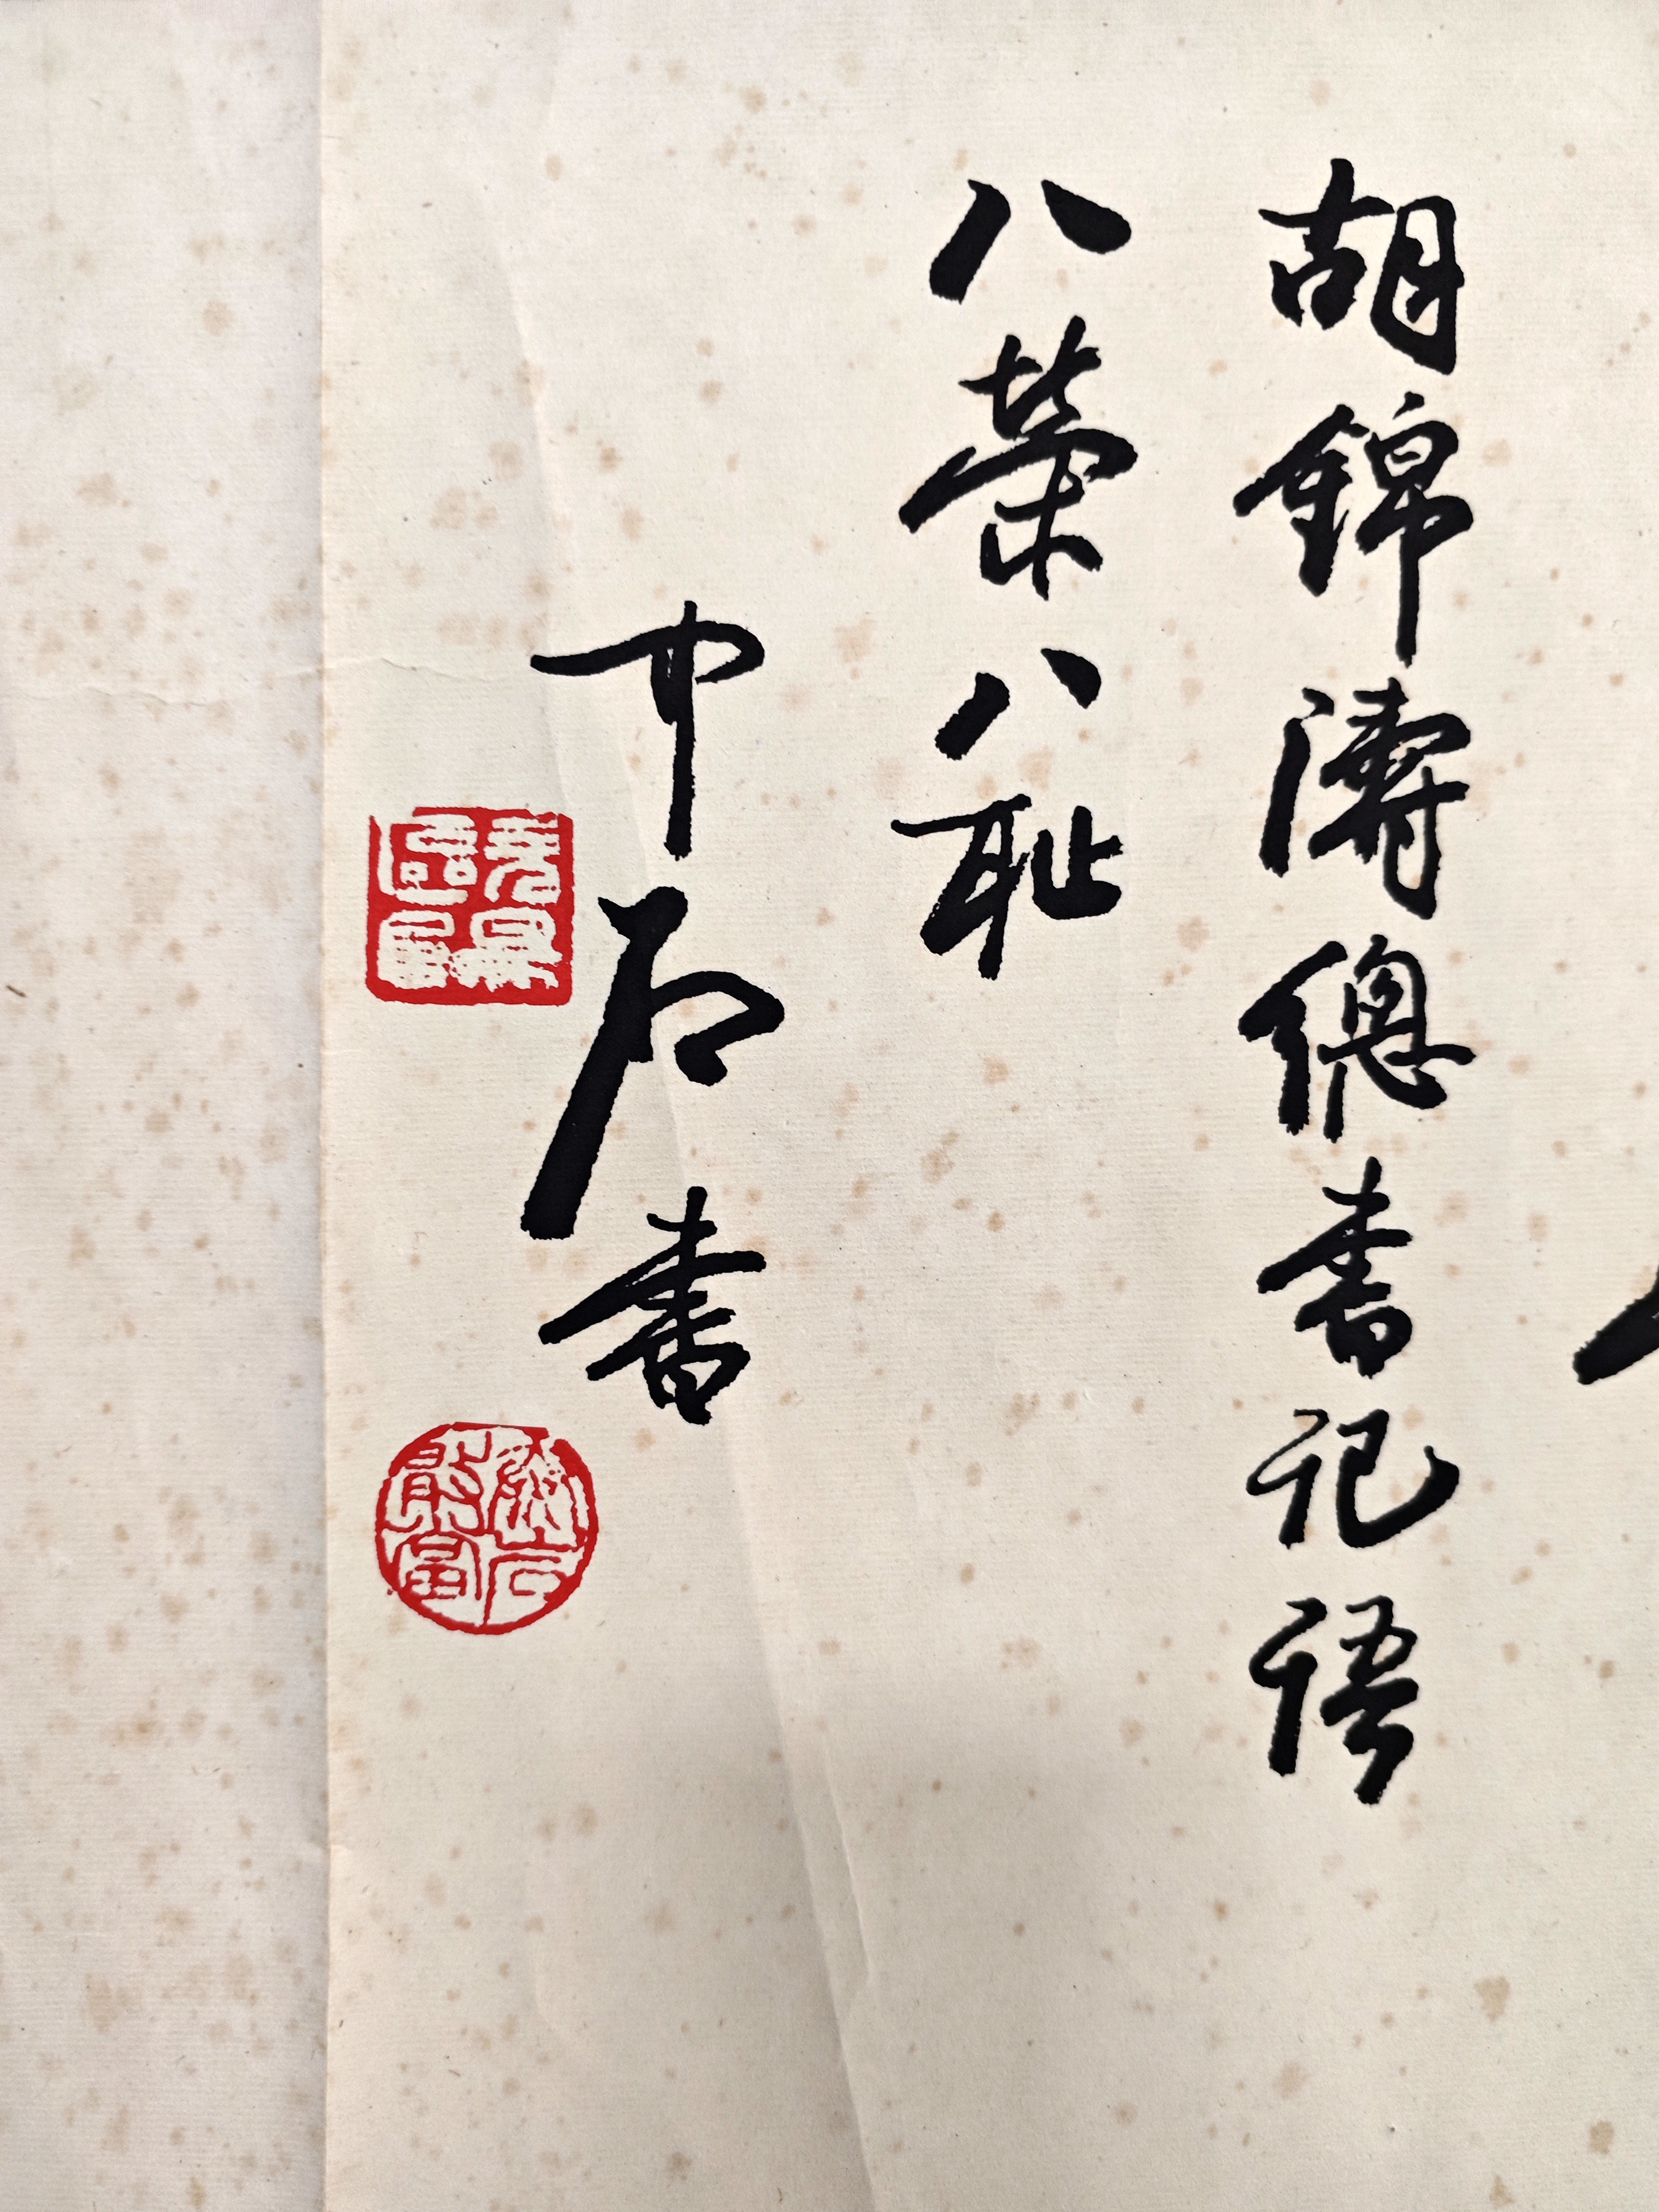 胡錦濤總書記語
八榮八耻
中石書